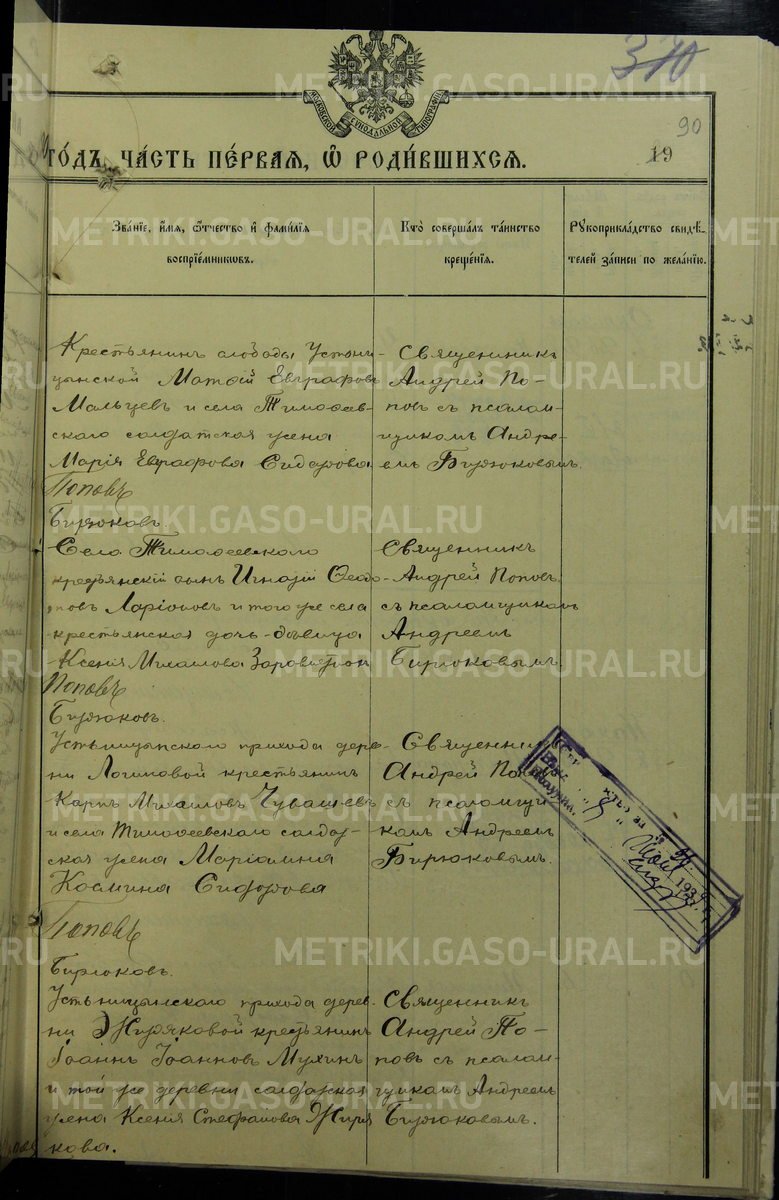 370
90
МОСКОВСКОЙ СУНОДАЛЬНОЙ ТИПОГРАФІИ
ГО́ДЪ, ЧА́СТЬ ПЕ́РВАЯ, Ѽ РОДИ́ВШИХСЯ.
19
Зва́нїе, и҆́мя, ѻ҆́тчество и҆ фами́лїя
воспрїе́мникωвъ.
Кто̀ соверша́лъ та́инство
креще́нїя.
Рꙋкоприкла́дство свидѣ́-
телей за́писи по жела́нїю.
Крестьянинъ слободы Устьни-
цынской Матѳій Евграфовъ
Мальцевъ и села Тимоѳеев-
скаго солдатская жена
Марія Евграфова Сидорова.
Священникъ
Андрей По-
повъ съ псалом-
щикомъ Андре-
емъ Бирюковымъ.
Поповъ
Бирюковъ.
Села Тимоѳеевскаго
крестьянскій сынъ Игнатій Ѳеодо-
ровъ Ларіоновъ и того же села
крестьянская дочь-дѣвица
Ксенія Михаилова
Священникъ
Андрей Поповъ
съ псаломщикомъ
Андреемъ
Бирюковымъ.
Поповъ
Бирюковъ.
прихода дерев-
ни Логиновой крестьянинъ
Карпъ Михаиловъ Чувашевъ
и села Тимоѳеевскаго солдат-
ская жена Маріамна
Космина Сидорова
Священникъ
Андрей Поповъ
съ псаломщи-
комъ Андреемъ
Бирюковымъ.
Поповъ
Бирюковъ.
прихода дерев-
ни Жиряковой крестьянинъ
Іоаннъ Іоанновъ Мухинъ
и той же деревни солдатская
жена Ксенія Стефанова Жиря-
кова.
Священникъ
Андрей По-
повъ съ псалом-
щикомъ Андреемъ
Бирюковымъ.
METRIKI.GASO-URAL.RU